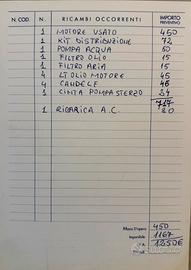 N. COD. N. RICAMBI OCCORRENTI IMPORTO PREVENTIVO
1 MOTORE USATO 450
1 KIT DISTRIBUZIONE 72
1 POMPA ACQUA 50
1 FILTRO OLIO 15
1 FILTRO ARIA 15
4 LT OLIO MOTORE 45
4 CANDELE 46
1 CINTA POMPA STERZO 24
717
1 RICARICA A.C. 80
Mano D'opera 450
Imponibile 1167
1250€